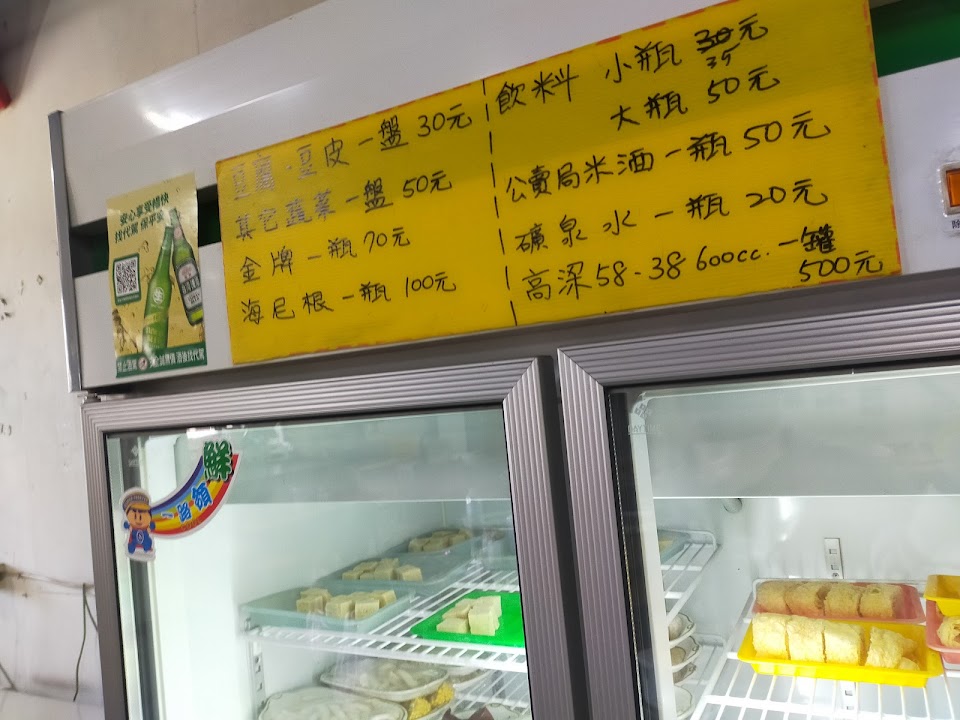 豆腐・豆皮 一盤 30元
其它蔬菜 一盤 50元
金牌 一瓶 70元
海尼根 一瓶 100元
飲料 小瓶 30元
35
大瓶 50元
公賣局米酒 一瓶 50元
礦泉水 一瓶 20元
高深58-38 600cc. 一罐
500元
安心享受暢快
找代駕 保平安
禁止酒駕 酒後找代駕
一路領鮮